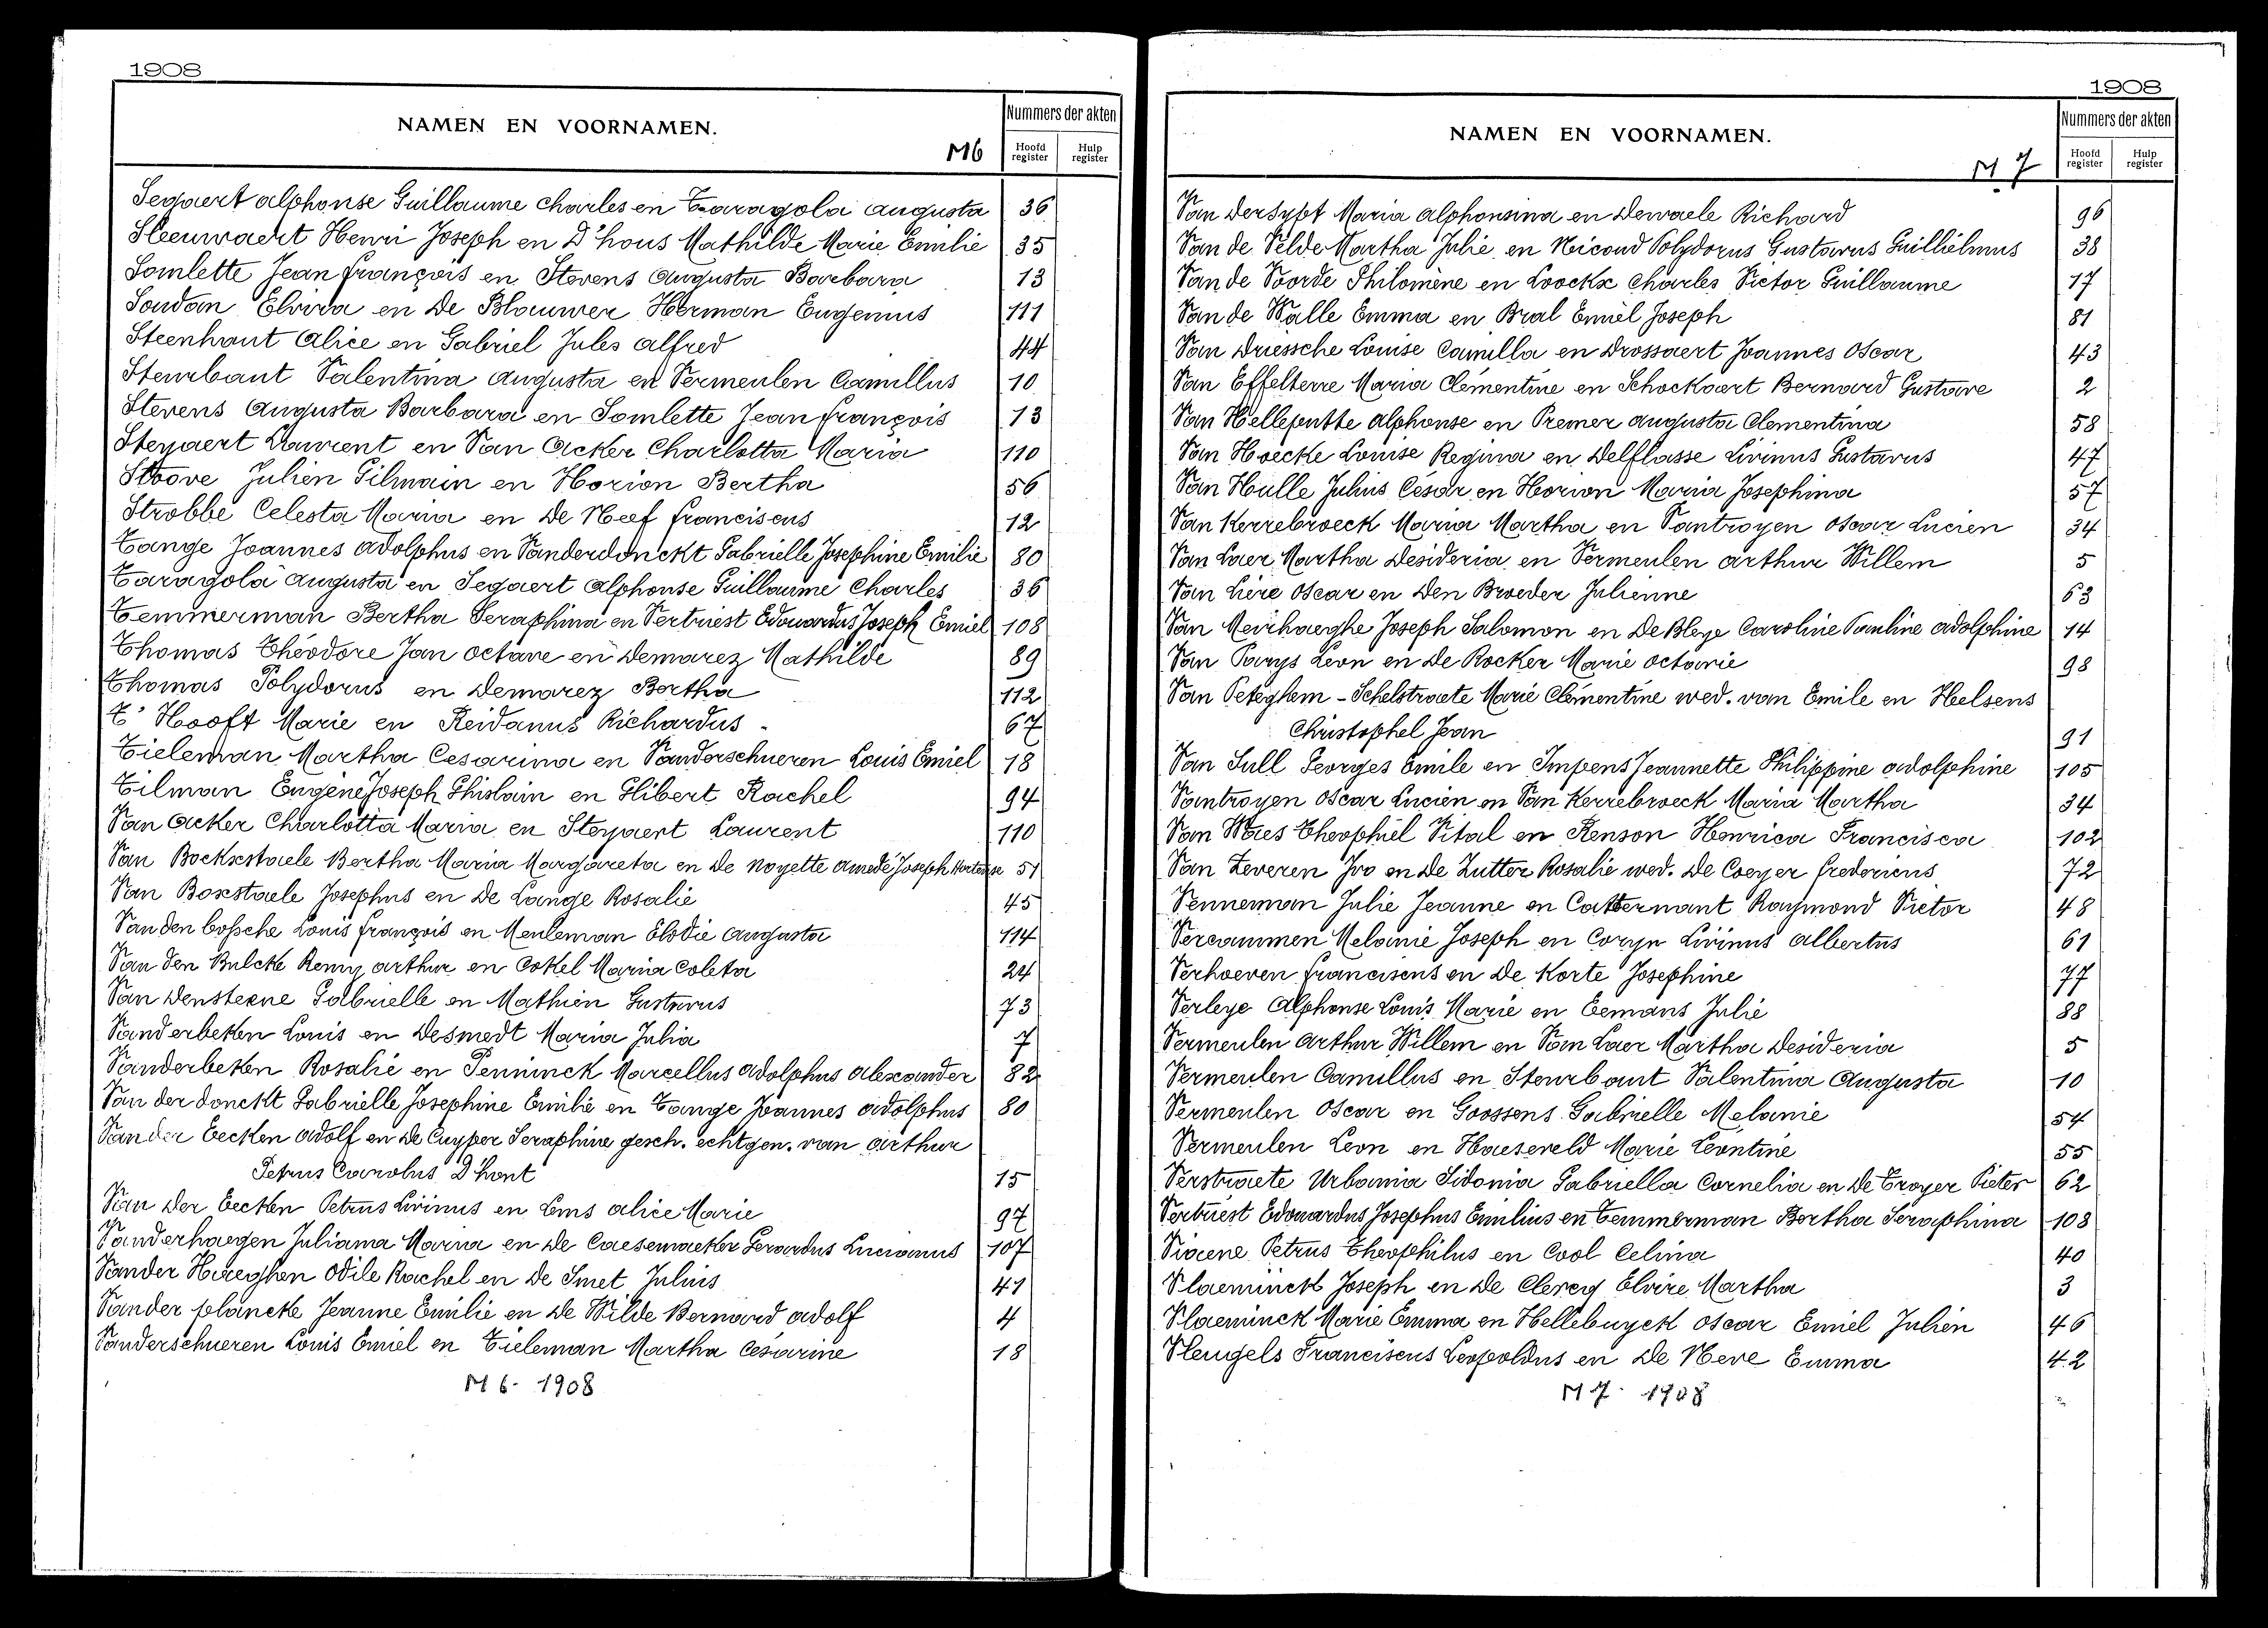 1908
NAMEN EN VOORNAMEN.
M6
Nummers der akten
Hoofd register
Hulp register
Segaert Alphonse Guillaume Charles en Taragola Augusta 36
Sleeuwaert Henri Joseph en D'hous Mathilde Marie Emilie 35
Somlette Jean François en Stevens Augusta Barbara 13
Soudan Elvira en De Blauwer Herman Eugenius 111
Steenhaut Alice en Gabriel Jules Alfred 44
Steurbaut Valentina Augusta en Vermeulen Camillus 10
Stevens Augusta Barbara en Somlette Jean François 13
Steyaert Laurent en Van Acker Charlotta Maria 110
Stoove Julien Gilmain en Horion Bertha 56
Strobbe Celesta Maria en De Neef Franciscus 12
Tange Joannes Adolphus en Vanderdonckt Gabrielle Josephine Emilie 80
Taragola Augusta en Segaert Alphonse Guillaume Charles 36
Temmerman Bertha Seraphina en Vertriest Edouardus Joseph Emiel 108
Thomas Théodore Jan Octave en Demarez Mathilde 89
Thomas Polydorus en Demarez Bertha 112
T' Hooft Marie en Reidanus Richardus - 67
Tieleman Martha Cesarina en Vanderschueren Louis Emiel 18
Tilman Eugène Joseph Ghislain en Glibert Rachel 94
Van Acker Charlotta Maria en Steyaert Laurent 110
Van Bockxstaele Bertha Maria Margareta en De Noyette Amedé Joseph Hortense 51
Van Boxstaele Josephus en De Lange Rosalie 45
Van den bossche Louis François en Meuleman Elodie Augusta 114
Van den Bulcke Remy Arthur en Cokel Maria Coleta 24
Van Densteene Gabrielle en Mathien Gustavus 73
Vanderbeken Louis en Desmedt Maria Julia 7
Vanderbeken Rosalie en Penninck Marcellus Adolphus Alexander 82
Van der donckt Gabrielle Josephine Emilie en Tange Joannes Adolphus 80
Van der Eecken Adolf en De Cuyper Seraphine gesch. echtgen. van Arthur
Petrus Carolus D'hont 15
Van Der Eecken Petrus Livinus en Ems Alice Marie 97
Vanderhaegen Juliana Maria en De Caesemaeker Gerardus Lucianus 107
Vander Haeghen Odile Rachel en De Smet Julius 41
Vander plancke Jeanne Emilie en De Wilde Bernard Adolf 4
Vanderschueren Louis Emiel en Tieleman Martha Césarine 18
M 6. 1908
1908
NAMEN EN VOORNAMEN.
M 7
Nummers der akten
Hoofd register
Hulp register
Van Dersypt Maria Alphonsina en Dewaele Richard 96
Van de Velde Martha Julie en Nicoud Polydorus Gustavus Guilliëlmus 38
Van de Voorde Philomène en Loockx Charles Victor Guillaume 17
Van de Walle Emma en Bral Emiel Joseph 81
Van Driessche Louise Camilla en Drossaert Joannes Oscar 43
Van Effelterre Maria Clémentine en Schockaert Bernard Gustave 2
Van Helleputte Alphonse en Premer Augusta Clementina 58
Van Hoecke Louise Regina en Delflasse Livinus Gustavus 47
Van Hulle Julius César en Horion Maria Josephina 57
Van Kerrebroeck Maria Martha en Vantroyen Oscar Lucien 34
Van Laer Martha Desideria en Vermeulen Arthur Willem 5
Van Liere Oscar en Den Broeder Julienne 63
Van Meirhaeghe Joseph Salomon en De Bleye Caroline Pauline Adolphine 14
Van Parys Leon en De Rocker Marie Octavie 98
Van Peteghem - Schelstraete Marie Clémentine wed. van Emile en Helsens
Christophel Jean 91
Van Sull Georges Emile en Impens Jeannette Philippine Adolphine 105
Vantroyen Oscar Lucien en Van Kerrebroeck Maria Martha 34
Van Waes Theophiel Vital en Renson Henrica Francisca 102
Van Zeveren Ivo en De Zutter Rosalie wed. De Coeyer Fredericus 72
Venneman Julie Jeanne en Catternant Raymond Victor 48
Vercammen Melanie Joseph en Coryn Livinus Albertus 61
Verhoeven Franciscus en De Korte Josephine 77
Verleye Alphonse Louis Marie en Eemans Julie 88
Vermeulen Arthur Willem en Van Laer Martha Desideria 5
Vermeulen Camillus en Steurbaut Valentina Augusta 10
Vermeulen Oscar en Goossens Gabrielle Melanie 54
Vermeulen Leon en Haeseveld Marie Léontine 55
Verstraete Urbania Sidonia Gabriella Cornelia en De Troyer Pieter 62
Vertriest Edouardus Josephus Emilius en Temmerman Bertha Seraphina 108
Viaene Petrus Theophilus en Cool Celina 40
Vlaeminck Joseph en De Clercq Elvire Martha 3
Vlaeminck Marie Emma en Hellebuyck Oscar Emiel Julien 46
Vleugels Franciscus Leopoldus en De Neve Emma 42
M 7. 1908